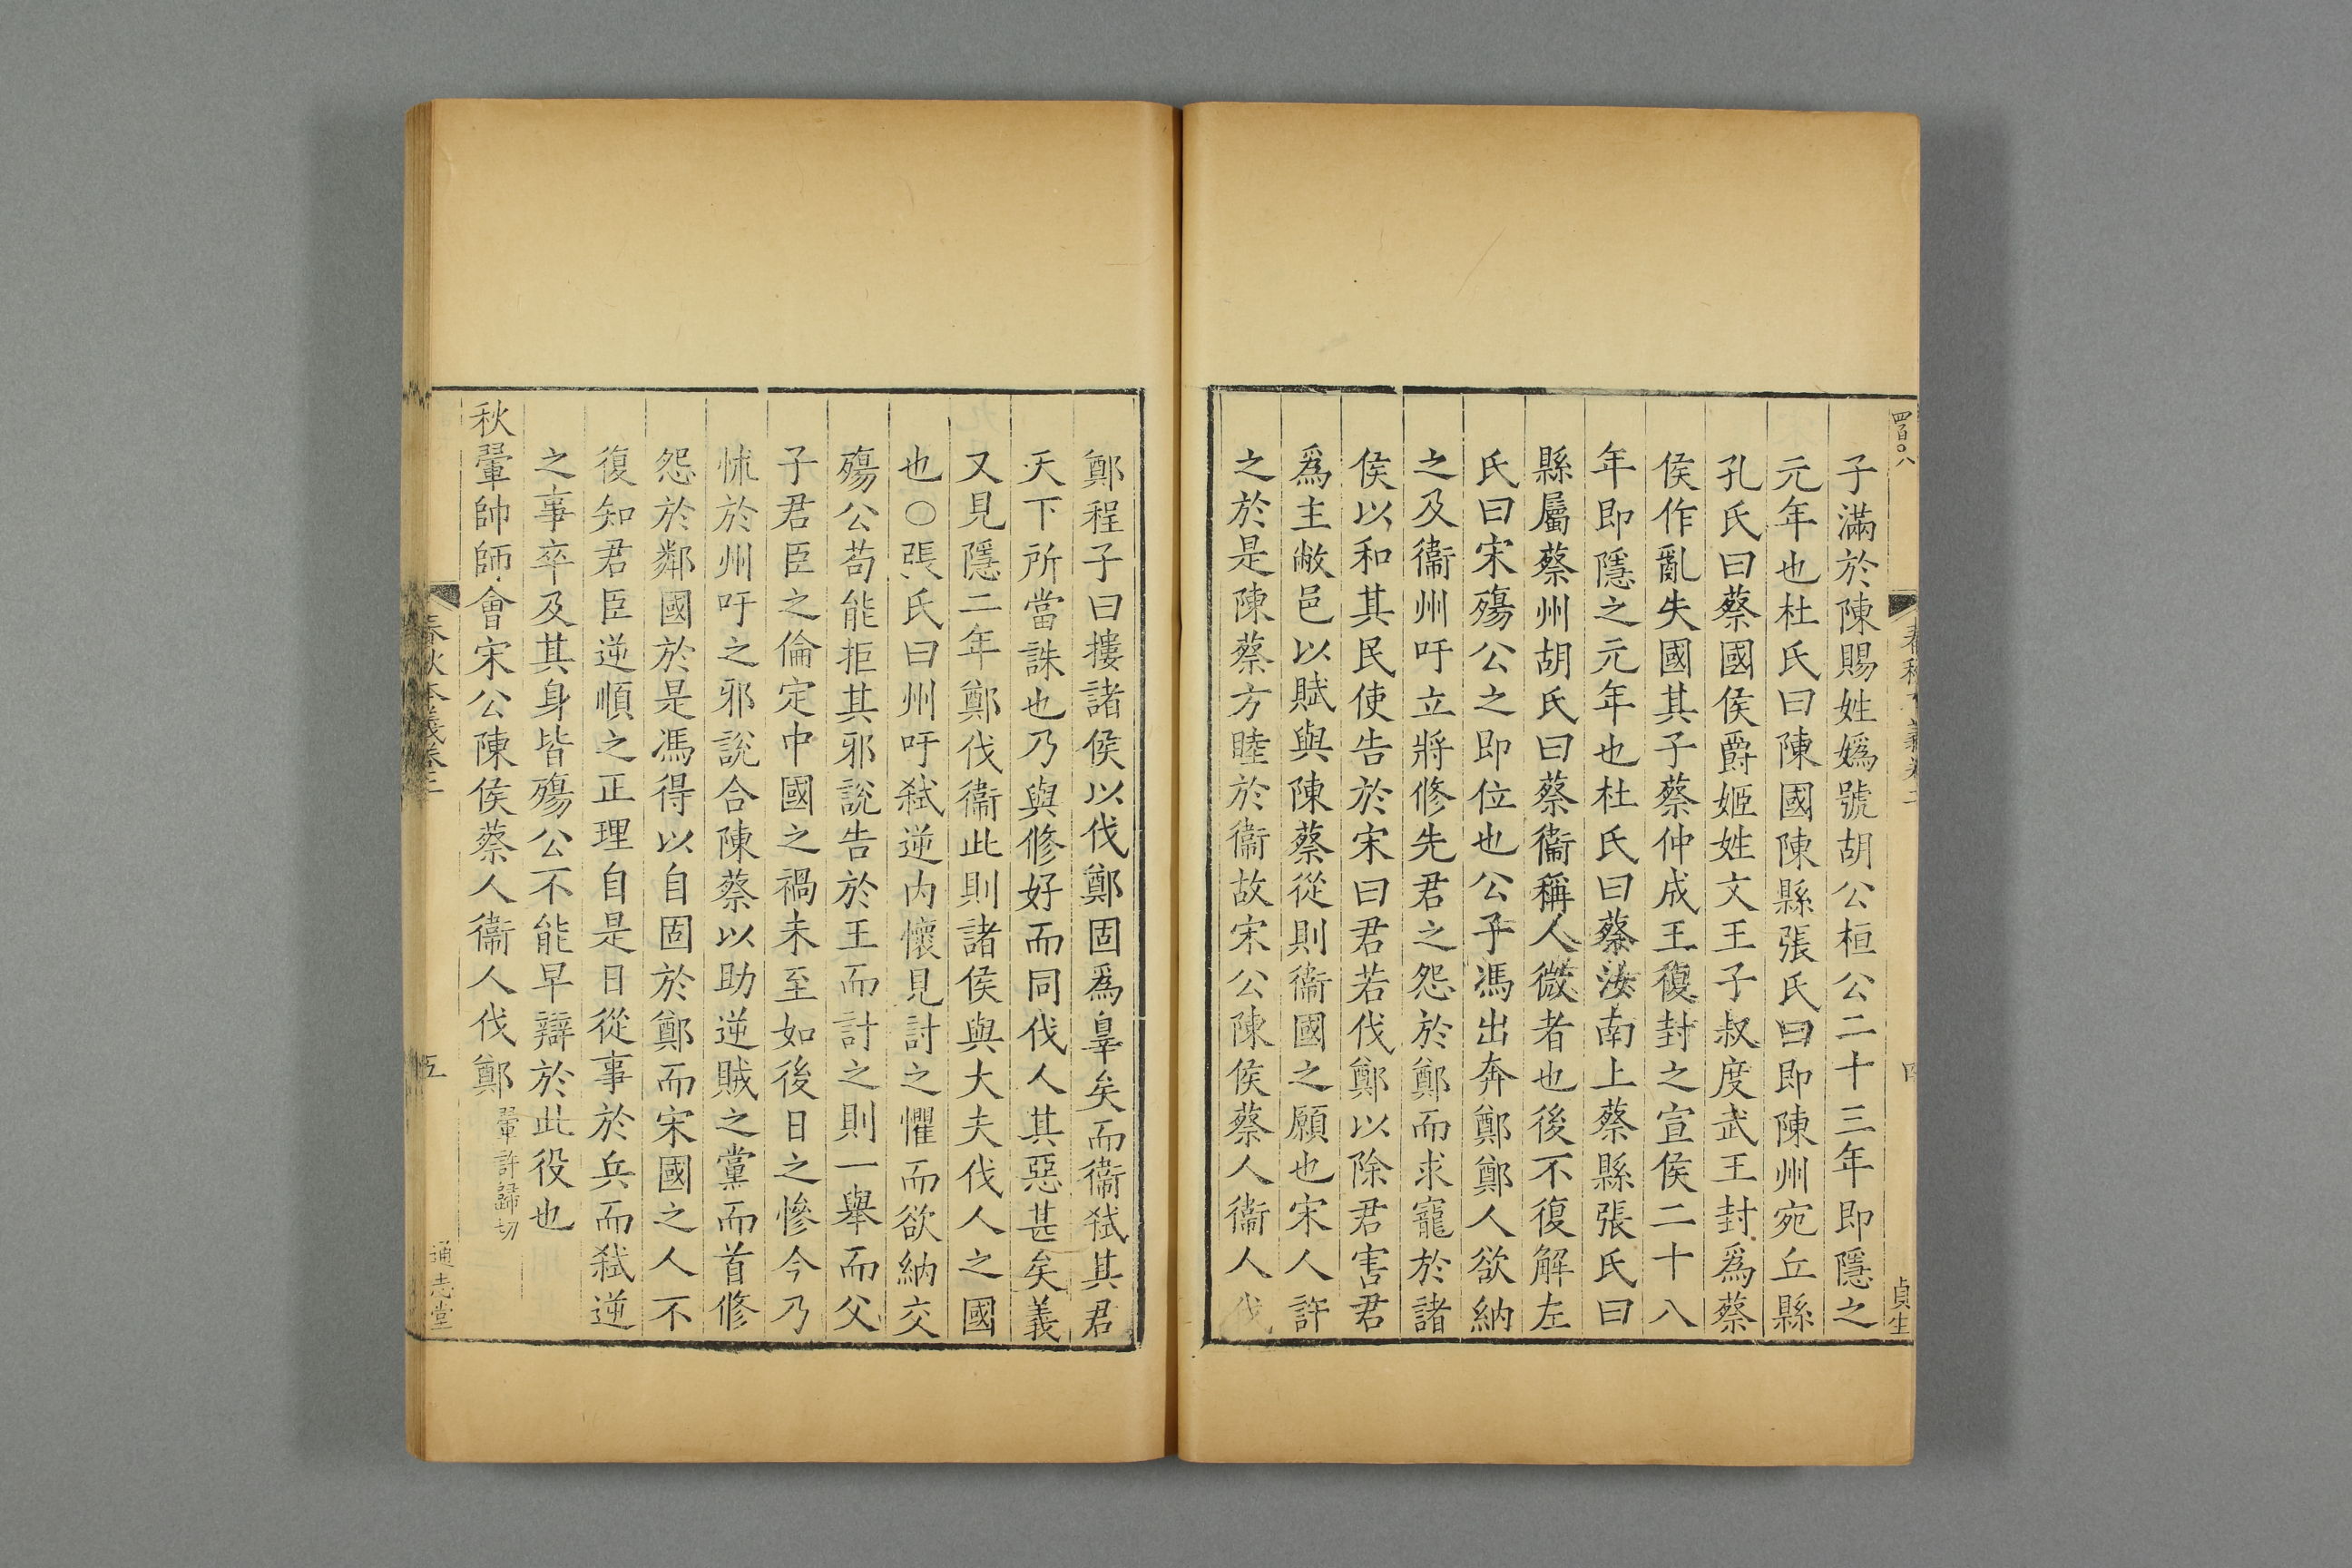 四百〇八
春秋本義卷二
四
貞生
子滿於陳賜姓嬀號胡公桓公二十三年即隱之
元年也杜氏曰陳國陳縣張氏曰即陳州宛丘縣
孔氏曰蔡國侯爵姬姓文王子叔度武王封爲蔡
侯作亂失國其子蔡仲成王復封之宣侯二十八
年即隱之元年也杜氏曰蔡汝南上蔡縣張氏曰
縣屬蔡州胡氏曰蔡衞稱人微者也後不復解左
氏曰宋殤公之即位也公子馮出奔鄭鄭人欲納
之及衞州吁立將修先君之怨於鄭而求寵於諸
侯以和其民使告於宋曰君若伐鄭以除君害君
爲主敝邑以賦與陳蔡從則衞國之願也宋人許
之於是陳蔡方睦於衞故宋公陳侯蔡人衞人伐
鄭程子曰摟諸侯以伐鄭固爲辠矣而衞弑其君
天下所當誅也乃與修好而同伐人其惡甚矣義
又見隱二年鄭伐衞此則諸侯與大夫伐人之國
也○張氏曰州吁弑逆内懷見討之懼而欲納交
殤公苟能拒其邪說告於王而討之則一舉而父
子君臣之倫定中國之禍未至如後日之慘今乃
怵於州吁之邪說合陳蔡以助逆賊之黨而首修
怨於鄰國於是馮得以自固於鄭而宋國之人不
復知君臣逆順之正理自是日從事於兵而弑逆
之事卒及其身皆殤公不能早辯於此役也
秋翬帥師會宋公陳侯蔡人衞人伐鄭翬許歸切
春秋本義卷二
五
通志堂